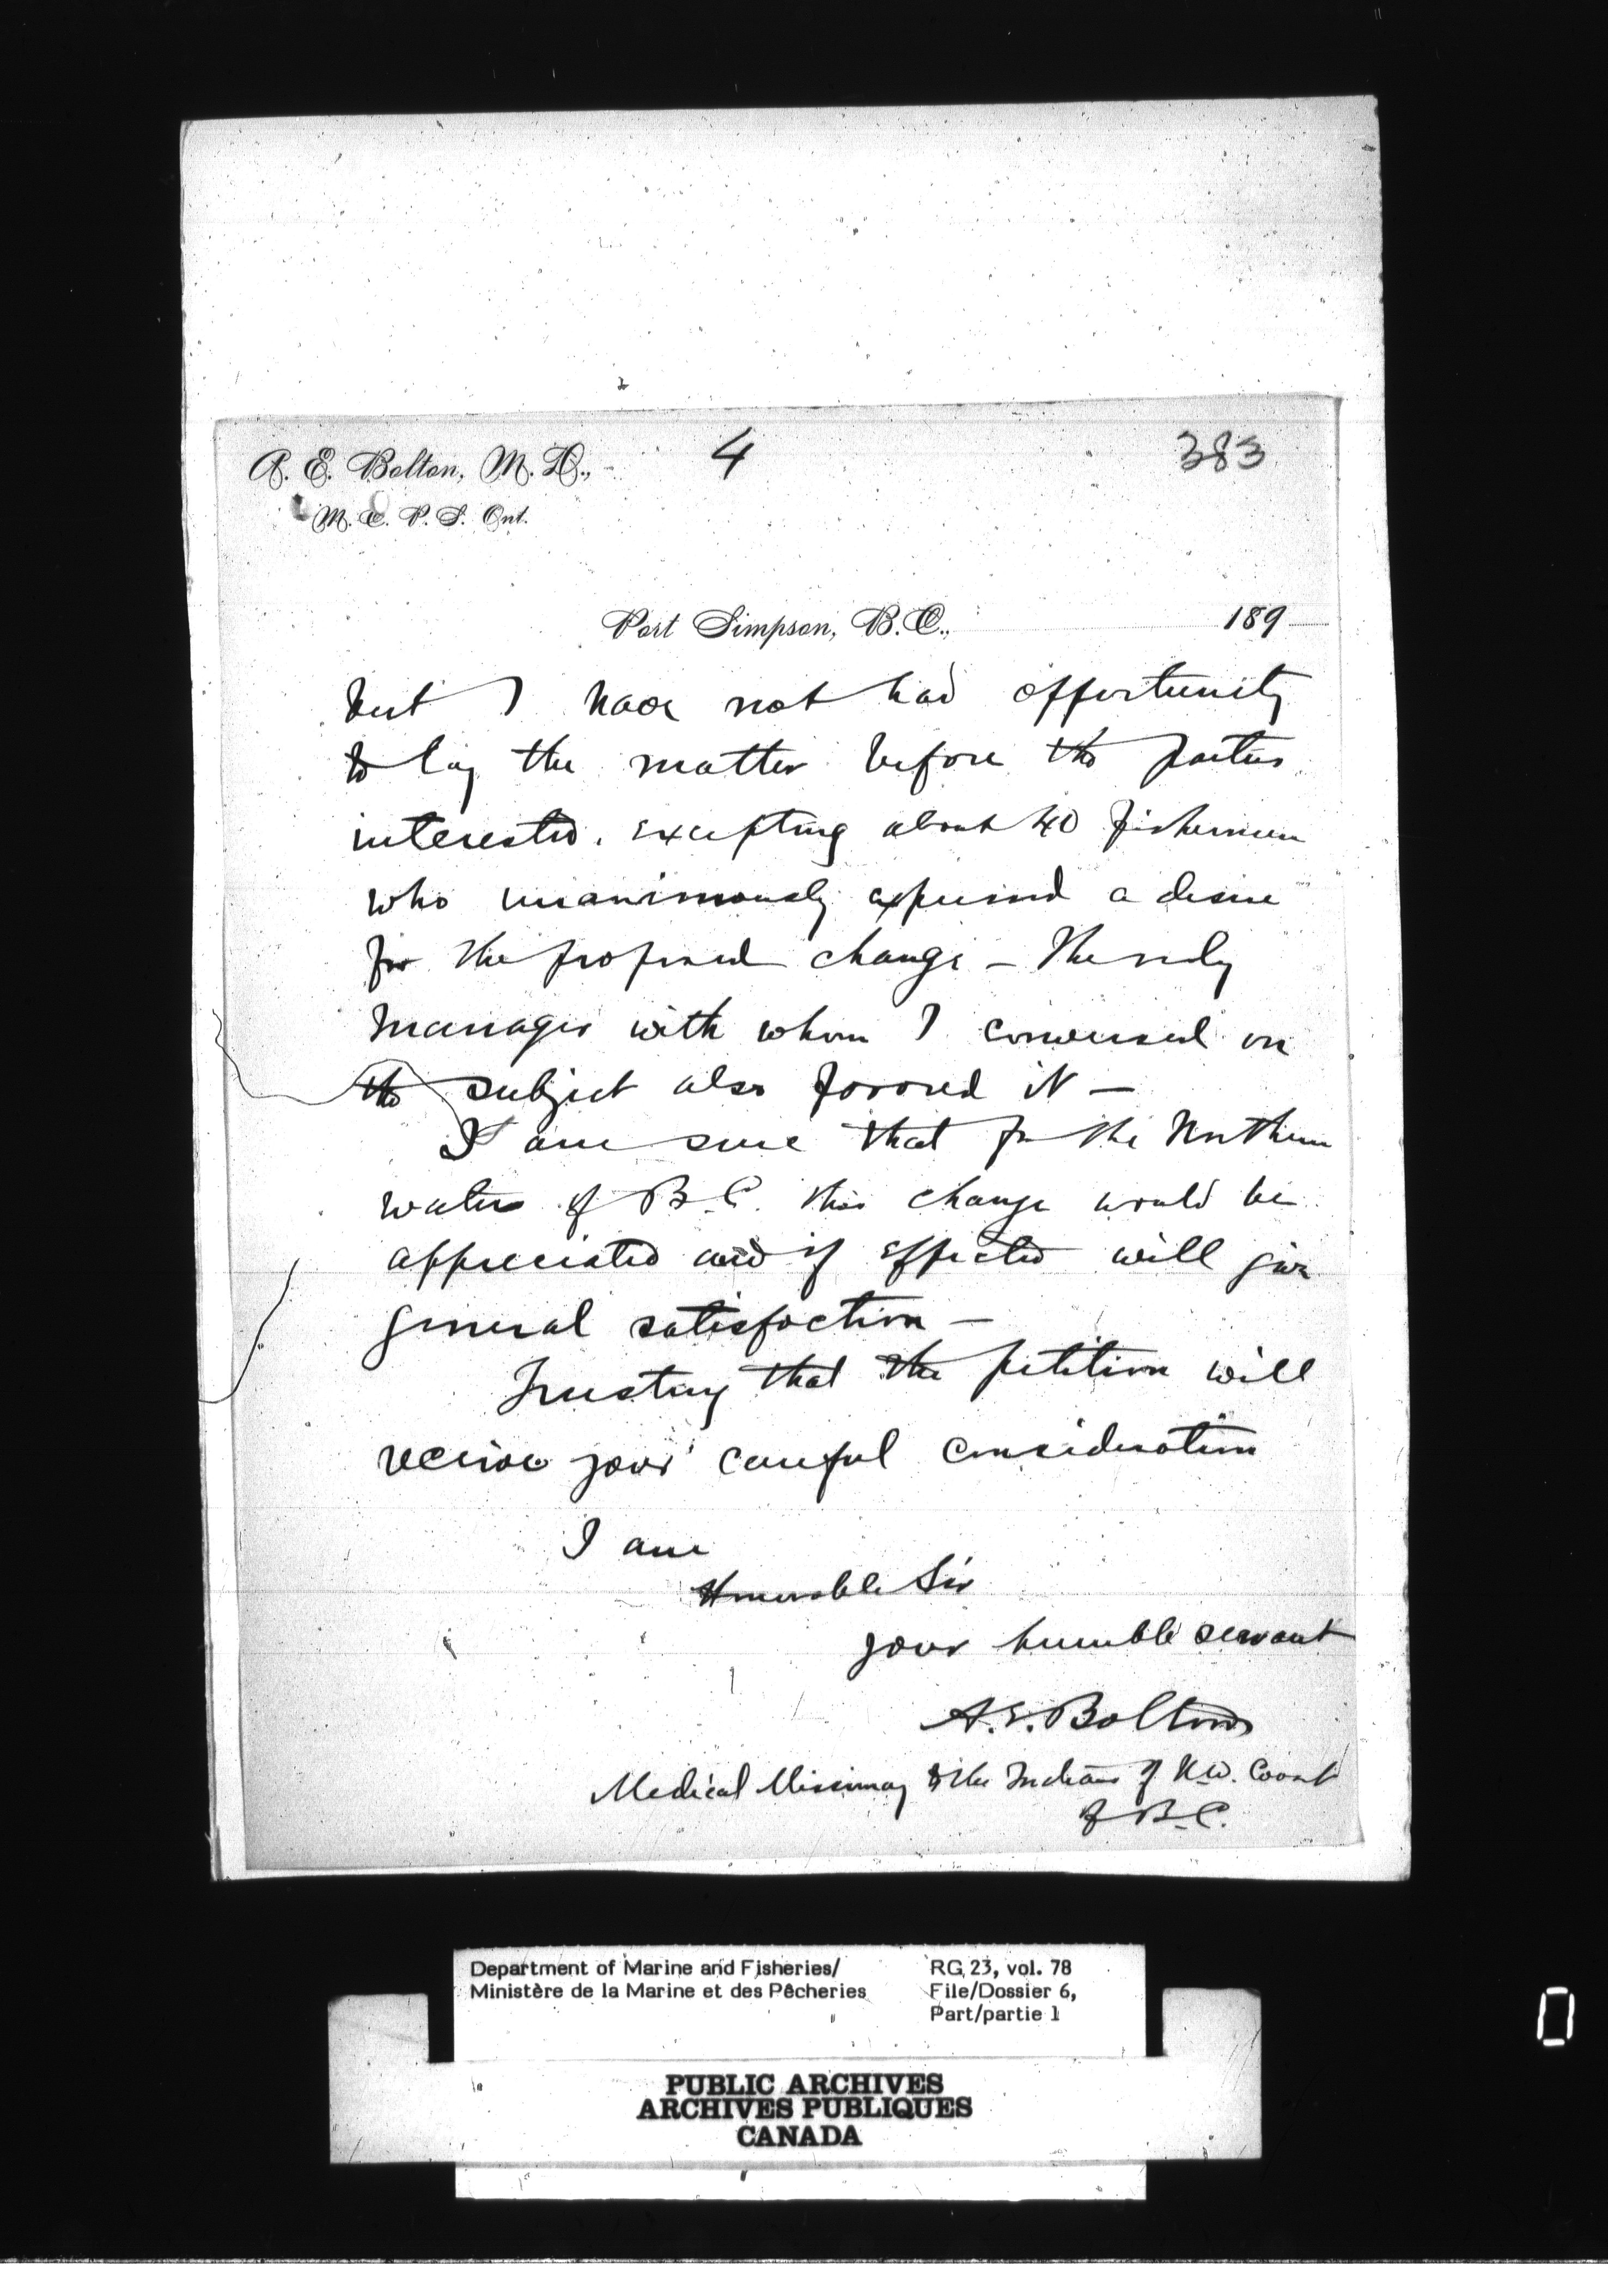 A. E. Bolton, M. D., 4 383
M. C. P. S. Ont.
Port Simpson, B. C., 189
but I have not had opportunity
to lay the matter before the parties
interested. excepting about 40 fishermen
who unanimously expressed a desire
for the proposed change – The only
manager with whom I conversed on
the subject also favored it –
I am sure that for the Northern
waters of B.C. this change would be
appreciated and if effected will give
general satisfaction –
Trusting that the petition will
receive your careful consideration
I am
Honorable Sir
your humble servant
A. E. Bolton
Medical Missionary to the Indians of N.W. Coast
of B.C.
Department of Marine and Fisheries/ RG 23, vol. 78
Ministère de la Marine et des Pêcheries File/Dossier 6,
Part/partie 1
PUBLIC ARCHIVES
ARCHIVES PUBLIQUES
CANADA